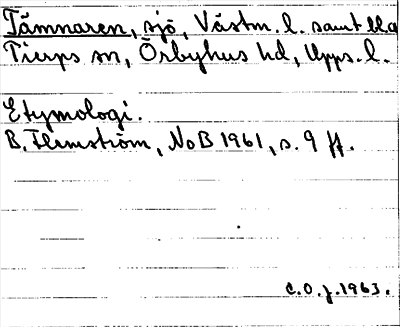 Tämnaren, sjö, Västm. l. samt bl.a
Tierps sn, Örbyhus hd, Upps. l.
Etymologi.
B. Flemström, NoB 1961, s. 9 ff.
C.O.J. 1963.